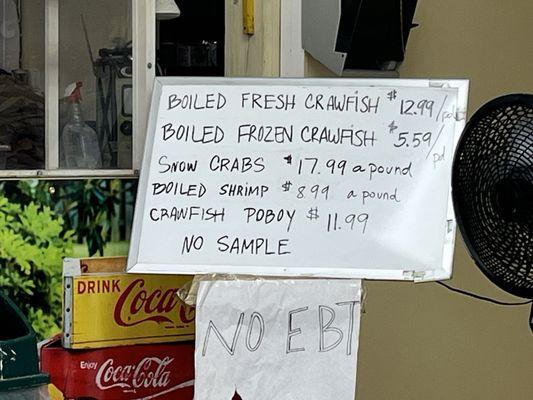 BOILED FRESH CRAWFISH $12.99/pd
BOILED FROZEN CRAWFISH $5.59/pd
SNOW CRABS $17.99 a pound
BOILED SHRIMP $8.99 a pound
CRAWFISH POBOY $11.99
NO SAMPLE
NO EBT
DRINK Coca-Cola
Enjoy
Coca-Cola